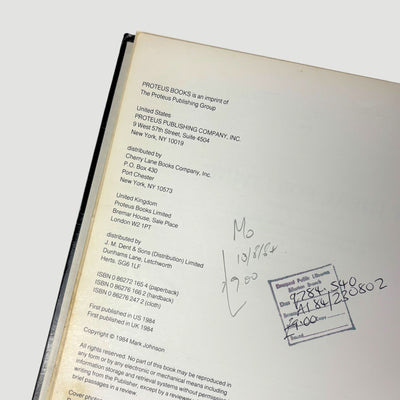 PROTEUS BOOKS is an imprint of
The Proteus Publishing Group
United States
PROTEUS PUBLISHING COMPANY, INC.
9 West 57th Street, Suite 4504
New York, NY 10019
distributed by
Cherry Lane Books Company, Inc.
P.O. Box 430
Port Chester
New York, NY 10573
United Kingdom
Proteus Books Limited
Bremar House, Sale Place
London W2 1PT
distributed by
J. M. Dent & Sons (Distribution) Limited
Dunhams Lane, Letchworth
Herts. SG6 1LF
ISBN 0 86272 165 4 (paperback)
ISBN 0 86276 166 2 (hardback)
ISBN 0 86276 247 2 (cloth)
First published in US 1984
First published in UK 1984
Copyright © 1984 Mark Johnson
All rights reserved. No part of this book may be reproduced in
any form or by any electronic or mechanical means including
information storage and retrieval systems without permission in
writing from the Publisher, except by a reviewer who may quote
brief passages in a review.
Mo
9.00
Public Libraries
9284.540
A184/230802
£9.00